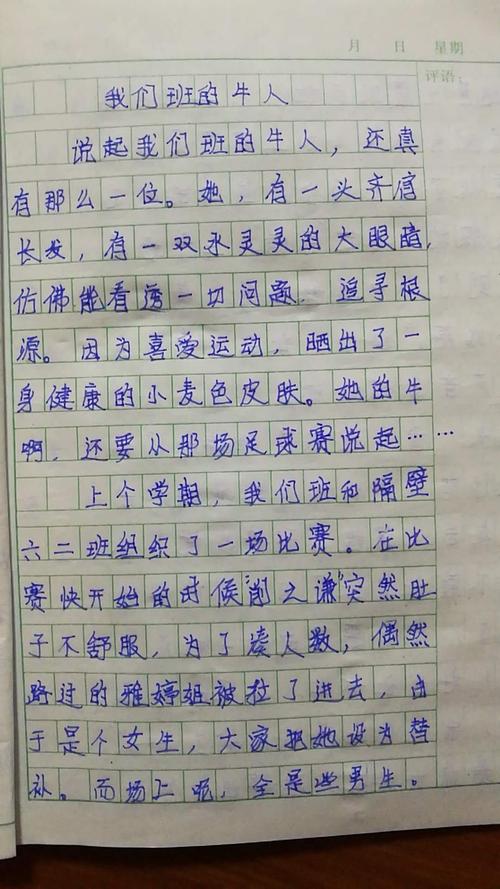 月 日 星期
评语：
我们班的牛人
说起我们班的牛人，还真
有那么一位。她，有一头齐肩
长发，有一双水灵灵的大眼睛，
仿佛能看透一切问题，追寻根
源。因为喜爱运动，晒出了一
身健康的小麦色皮肤。她的牛
啊，还要从那场足球赛说起……
上个学期，我们班和隔壁
六二班组织了一场比赛。在比
赛快开始的时候"削之谦"突然肚
子不舒服，为了凑人数，偶然
路过的雅婷姐被拉了进去，由
于是个女生，大家把她设为替
补。而场上呢，全是些男生。